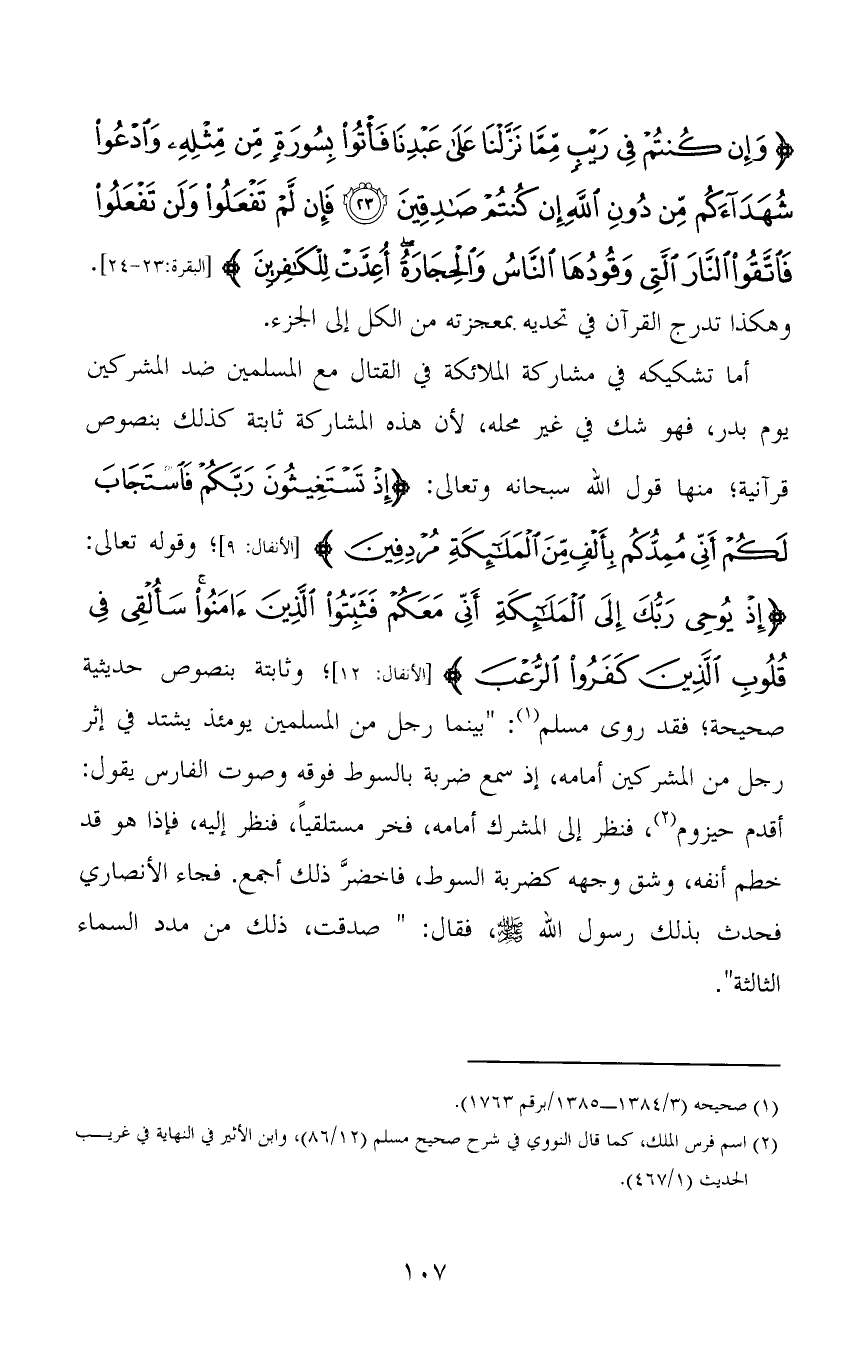 ﴿ وَإِن كُنتُمْ فِى رَيْبٍ مِّمَّا نَزَّلْنَا عَلَىٰ عَبْدِنَا فَأْتُوا۟ بِسُورَةٍ مِّن مِّثْلِهِۦ وَٱدْعُوا۟
شُهَدَآءَكُم مِّن دُونِ ٱللَّهِ إِن كُنتُمْ صَٰدِقِينَ ۝٢٣ فَإِن لَّمْ تَفْعَلُوا۟ وَلَن تَفْعَلُوا۟
فَٱتَّقُوا۟ ٱلنَّارَ ٱلَّتِى وَقُودُهَا ٱلنَّاسُ وَٱلْحِجَارَةُ ۖ أُعِدَّتْ لِلْكَٰفِرِينَ ﴾ [البقرة:٢٣-٢٤].
وهكذا تدرج القرآن في تحديه بمعجزته من الكل إلى الجزء.
أما تشكيكه في مشاركة الملائكة في القتال مع المسلمين ضد المشركين
يوم بدر، فهو شك في غير محله، لأن هذه المشاركة ثابتة كذلك بنصوص
قرآنية؛ منها قول الله سبحانه وتعالى: ﴿إِذْ تَسْتَغِيثُونَ رَبَّكُمْ فَٱسْتَجَابَ
لَكُمْ أَنِّى مُمِدُّكُم بِأَلْفٍ مِّنَ ٱلْمَلَٰٓئِكَةِ مُرْدِفِينَ ﴾ [الأنفال: ٩]؛ وقوله تعالى:
﴿إِذْ يُوحِى رَبُّكَ إِلَى ٱلْمَلَٰٓئِكَةِ أَنِّى مَعَكُمْ فَثَبِّتُوا۟ ٱلَّذِينَ ءَامَنُوا۟ ۚ سَأُلْقِى فِى
قُلُوبِ ٱلَّذِينَ كَفَرُوا۟ ٱلرُّعْبَ ﴾ [الأنفال: ١٢]؛ وثابتة بنصوص حديثية
صحيحة؛ فقد روى مسلم(١): "بينما رجل من المسلمين يومئذ يشتد في إثر
رجل من المشركين أمامه، إذ سمع ضربة بالسوط فوقه وصوت الفارس يقول:
أقدم حيزوم(٢)، فنظر إلى المشرك أمامه، فخر مستلقياً، فنظر إليه، فإذا هو قد
خطم أنفه، وشق وجهه كضربة السوط، فاخضرَّ ذلك أجمع. فجاء الأنصاري
فحدث بذلك رسول الله ﷺ، فقال: " صدقت، ذلك من مدد السماء
الثالثة".
(١) صحيحه (١٣٨٤/٣ــ١٣٨٥/برقم ١٧٦٣).
(٢) اسم فرس الملك، كما قال النووي في شرح صحيح مسلم (٨٦/١٢)، وابن الأثير في النهاية في غريـــب
الحديث (٤٦٧/١).
١٠٧